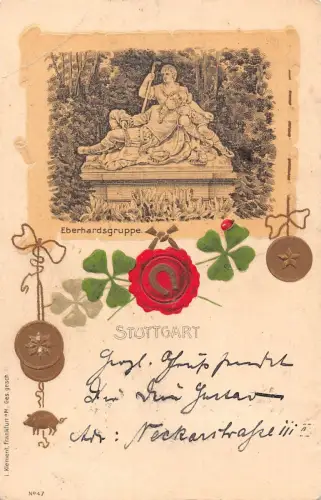 Eberhardsgruppe.
STUTTGART
Herzl. Gruss sendet
Dir Dein Gustav
Adr: Neckarstraße III
I. Klement, Frankfurt a/M. Ges. gesch.
No 47